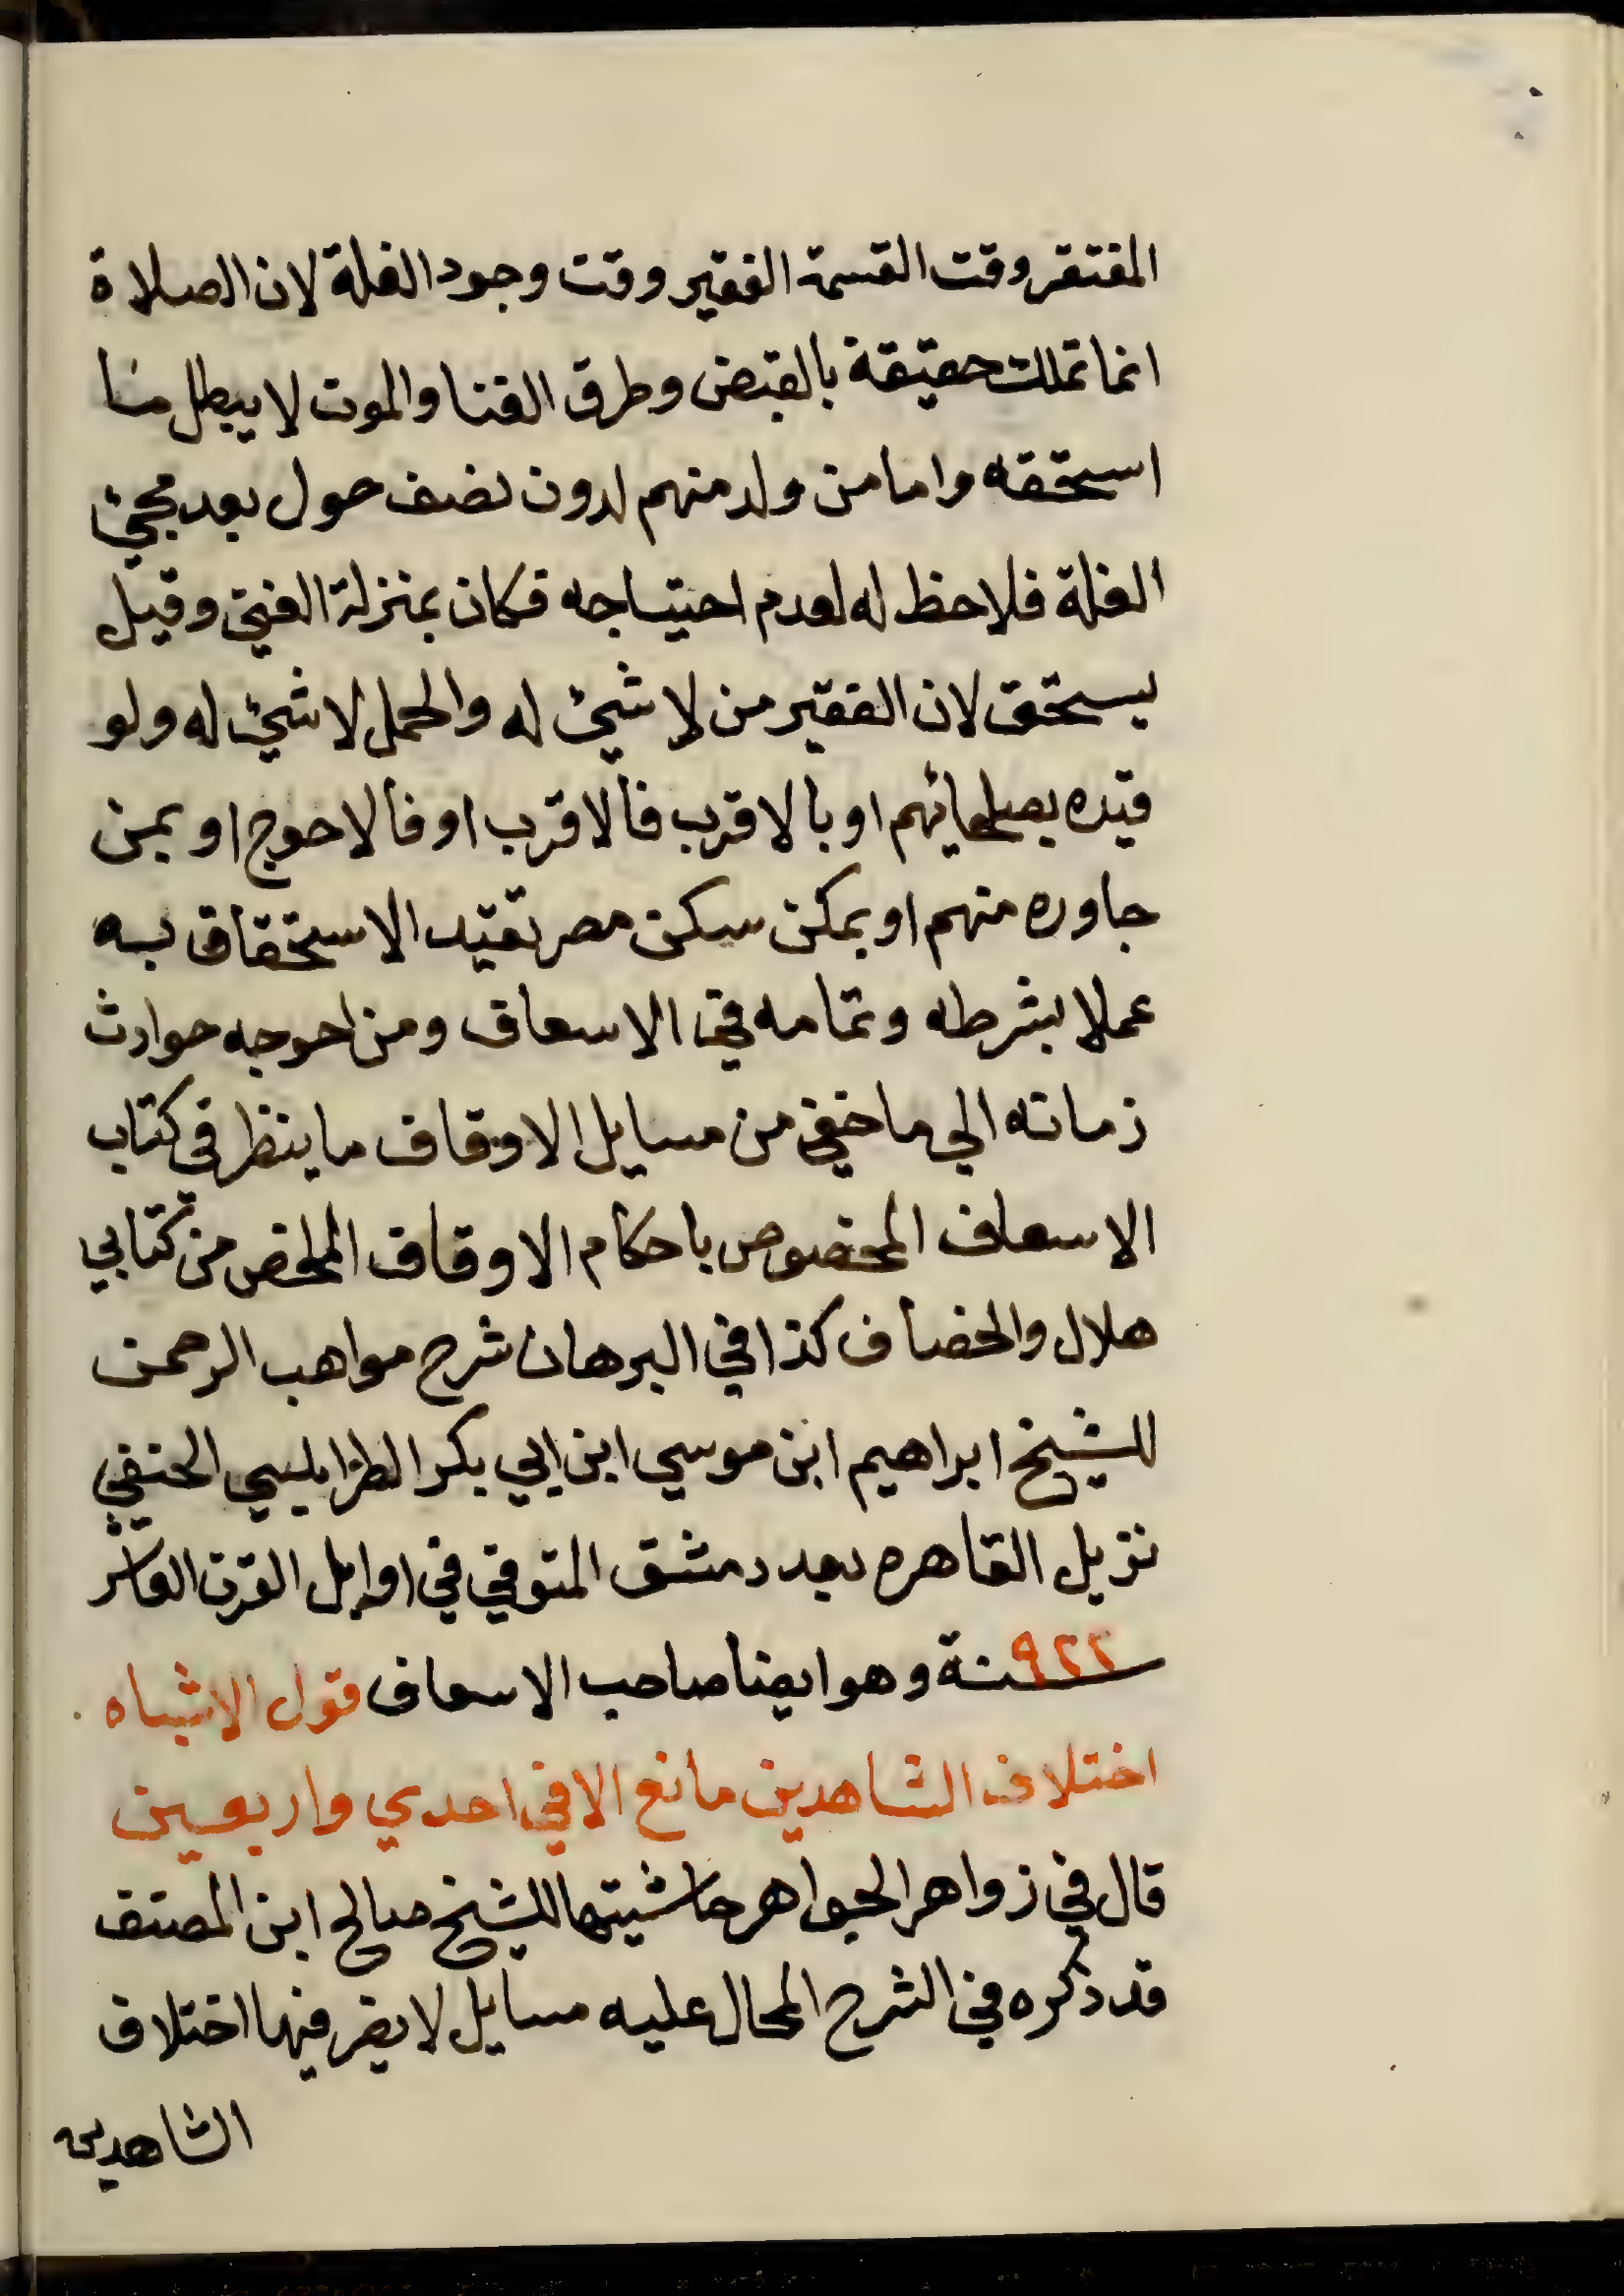 المفتقر وقت القسمة الفقير وقت وجود الغلة لان الصلاة
انما تملك حقيقة بالقبض وطرق الغنا والموت لا يبطل ما
استحقه واما من ولد منهم لدون نصف حول بعد مجئ
الغلة فلا حظ له لعدم احتياجه فكان بمنزلة الغني وقيل
يستحق لان الفقير من لا شئ له والحمل لا شئ له ولو
قيده بصلحائهم او بالاقرب فالاقرب او فالاحوج او بمن
جاوره منهم او بمكن سكن مصر تقيد الاستحقاق به
عملا بشرطه وتمامه في الاسعاف ومن احوجه حوادث
زمانه الي ما خفي من مسايل الاوقاف ما ينظر في كتاب
الاسعاف المخصوص باحكام الاوقاف الملخص من كتابي
هلال والخصاف كذا في البرهان شرح مواهب الرحمن
للشيخ ابراهيم ابن موسي ابن ابي بكر الطرابلسي الحنفي
نزيل القاهره بعد دمشق المتوفي في اوايل القرن العاشر
سنة ٩٢٢ وهو ايضا صاحب الاسعاف قول الاشباه
اختلاف الشاهدين مانع الا في احدي واربعين
قال في زواهر الجواهر حاشيتها للشيخ صالح ابن المصنف
قد ذكره في الشرح المحال عليه مسايل لا يضر فيها اختلاف
الشاهدين